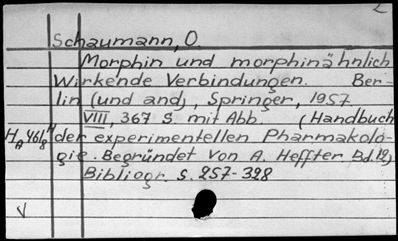 Schaumann, O
Morphin und morphinähnlich
Wirkende Verbindungen. Ber-
lin (und and), Springer, 1957
VIII, 367 S mit Abb. (Handbuch
der experimentellen Pharmakolo-
gie. Begründet von A. Heffter Bd. 12)
Bibliogr. S. 257-328
V